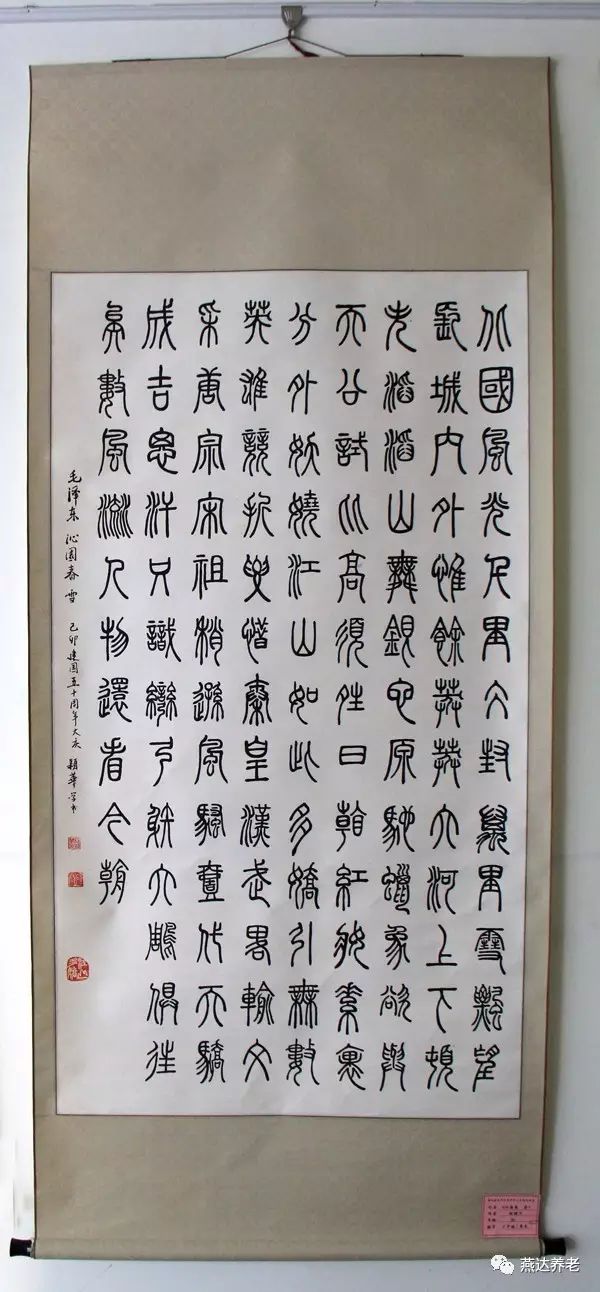 北國風光千里冰封萬里雪飄望
長城內外惟餘莽莽大河上下頓
失滔滔山舞銀蛇原馳蠟象欲與
天公試比高須晴日看紅妝素裹
分外妖嬈江山如此多嬌引無數
英雄競折腰惜秦皇漢武略輸文
采唐宗宋祖稍遜風騷壹代天驕
成吉思汗只識彎弓射大鵰俱往
矣數風流人物還看今朝
毛泽东 沁園春 雪 己卯建国五十周年大庆 穎華学书
燕达养老